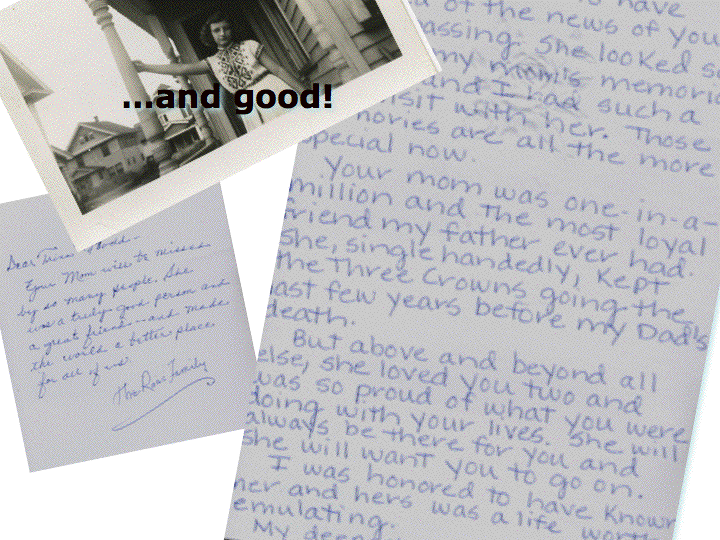 ...and good!
to have
of the news of you
passing. She looked s
my mom's memori
and I had such a
visit with her. Those
mories are all the more
special now.
Your mom was one-in-a-
million and the most loyal
friend my father ever had.
She, single handedly, kept
the Three Crowns going the
last few years before my Dad's
death.
But above and beyond all
else, she loved you two and
was so proud of what you were
doing with your lives. She will
always be there for you and
she will want you to go on.
I was honored to have known
her and hers was a life worth
emulating.
My deep
Dear
Your Mom will be missed
by so many people. She
was a truly good person and
a great friend - and made
the world a better place
for all of us.
The Rose Family